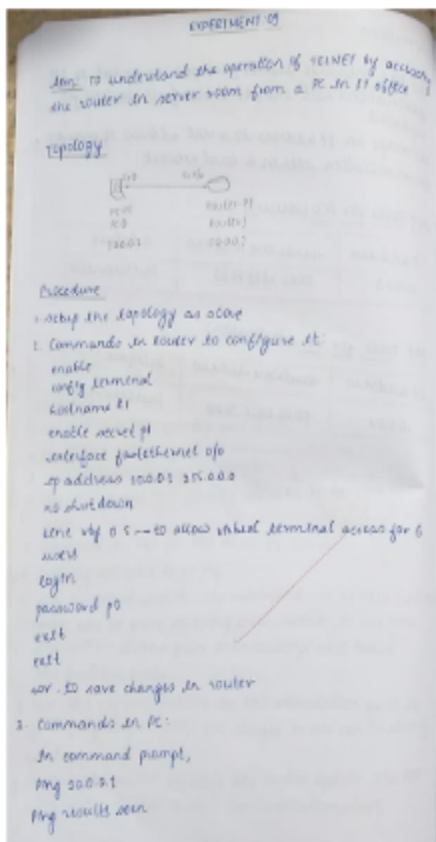 EXPERIMENT 09
Aim: To understand the operation of TELNET by accessing
the router in server room from a PC in IT office
Topology
PC-PT
PC0
Router-PT
Router1
Procedure
1. setup the topology as above
2. Commands in router to configure it:
enable
config terminal
hostname R1
enable secret p1
interface fastethernet 0/0
ip address 10.0.0.1 255.0.0.0
no shutdown
line vty 0 5 -- to allow virtual terminal access for 6
users
login
password p0
exit
exit
wr. to save changes in router
3. Commands in PC:
In command prompt,
Ping
Ping results seen